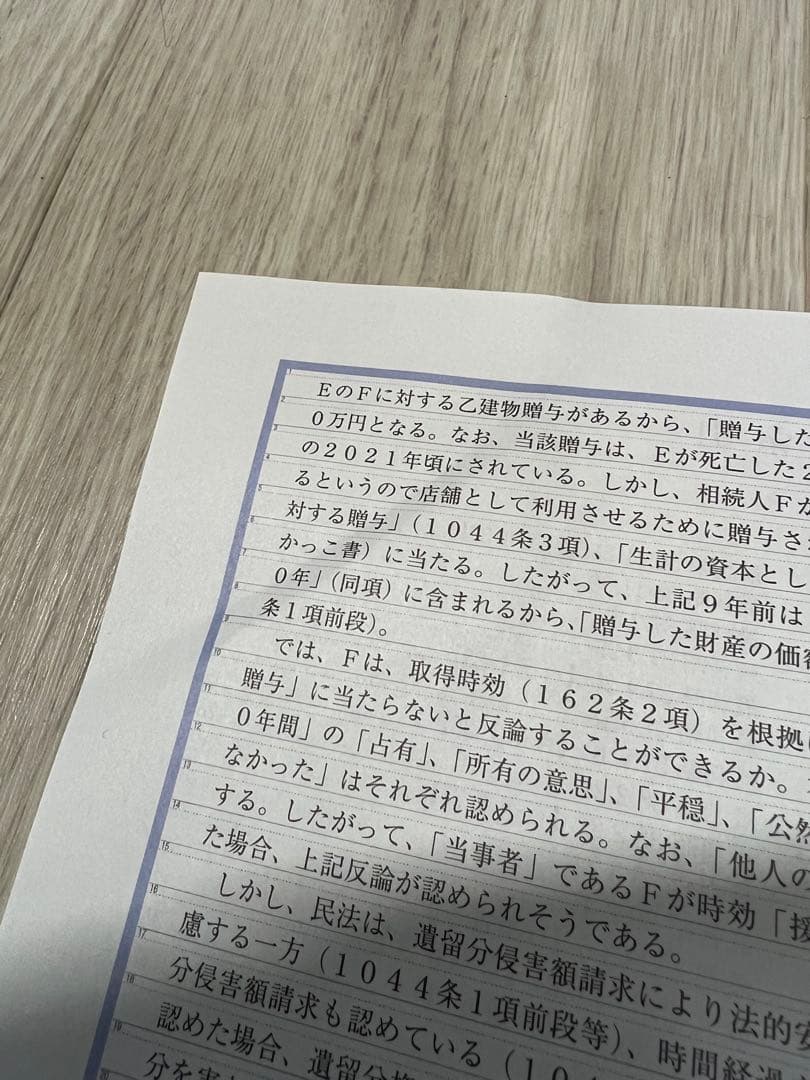 EのFに対する乙建物贈与があるから、「贈与した
0万円となる。なお、当該贈与は、Eが死亡した2
の2021年頃にされている。しかし、相続人Fが
るというので店舗として利用させるために贈与さ
対する贈与」(1044条3項)、「生計の資本とし
かっこ書)に当たる。したがって、上記9年前は
0年」(同項)に含まれるから、「贈与した財産の価額
条1項前段)。
では、Fは、取得時効(162条2項)を根拠に
贈与」に当たらないと反論することができるか。
0年間」の「占有」、「所有の意思」、「平穏」、「公然
なかった」はそれぞれ認められる。なお、「他人の
する。したがって、「当事者」であるFが時効「援
た場合、上記反論が認められそうである。
しかし、民法は、遺留分侵害額請求により法的安
慮する一方(1044条1項前段等)、時間経過
分侵害額請求も認めている(10
認めた場合、遺留分権
分を害
1
2
3
4
5
6
7
8
9
10
11
12
13
14
15
16
17
18
19
20